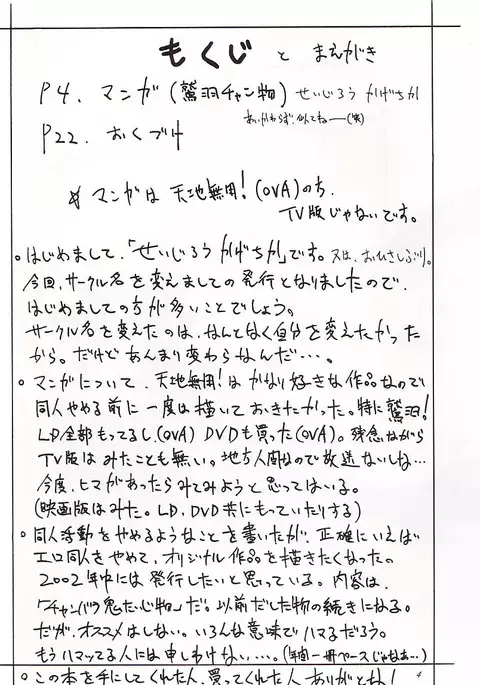 もくじ と まえがき
P4. マンガ(鷲羽チャン物) せいじろう かげちか
あいかわらず、似てねー(笑)
P22. おくづけ
☆ マンガは 天地無用!(OVA)のち.
TV版じゃないです。
○はじめまして、「せいじろう かげちか」です。又は、おひさしぶり。
今回、サークル名を変えましての発行となりましたので、
はじめましての方が多いことでしょう。
サークル名を変えたのは、なんとなく自分を変えたかった
から。だけどあんまり変わらなんだ…。
○マンガについて、天地無用!はかなり好きな作品なので
同人やめる前に一度は描いておきたかった。特に鷲羽!
LD全部もってるし(OVA) DVDも買った(OVA)。残念ながら
TV版はみたことも無い。地方人間なので放送ないしな…
今度、ヒマがあったらみてみようと思ってはいる。
(映画版はみた。LD、DVD共にもっていたりする)
○同人活動をやめるようなことを書いたが、正確にいえば
エロ同人をやめて、オリジナル作品を描きたくなった。
2002年中には発行したいと思っている。内容は、
「チャンバラ鬼たいじ物」だ。以前だした物の続きになる。
だが、オススメはしない。いろんな意味でハマるだろう。
もうハマッてる人には申しわけない…。(年間一冊ペースじゃなぁ…)
○この本を手にしてくれた人、買ってくれた人 ありがとな!